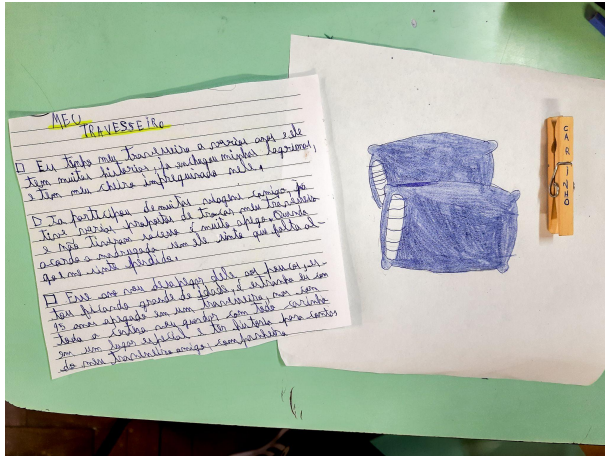 MEU
TRAVESSEIRO
Eu tenho meu travesseiro a varios anos ele
tem muitas historias, ja enchugou minhas lagrimas,
e tem meu cheiro impreguinado nele.
Ja participou de muitas viagens comigo, ja
tive varias propostas de trocar meu travesseiro
e não tiveram sucesso é muito apego. Quando
acordo a madrugada sem ele sinto que falta al-
go me sinto perdido.
Esse ano vou desapegar dele aos poucos, es-
tou ficando grande de idade, é estranho eu com
95 anos apegado em um travesseiro, mas com
toda a certeza vou guardar com todo carinho
em um lugar especial e ter historia para contar
do meu travesseiro amigo companheiro
CARINHO